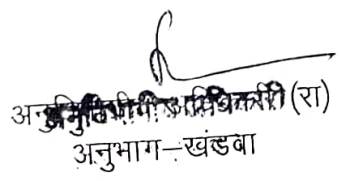 अनुविभागीय अधिकारी (रा)
अनुभाग–खंडवा